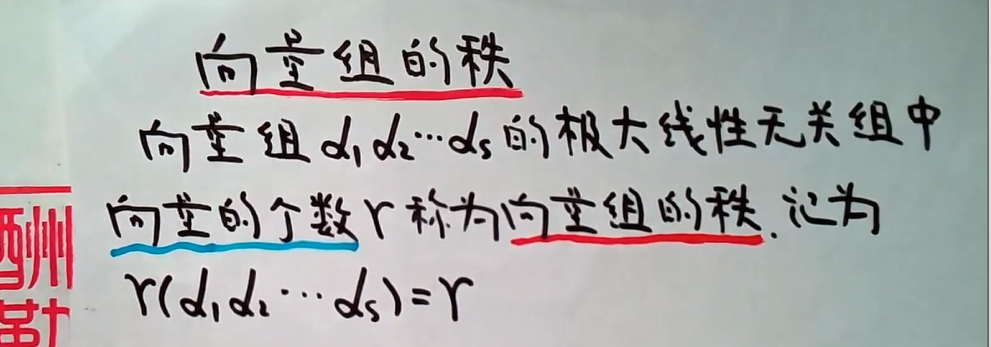 向量组的秩
向量组α₁α₂⋯αₛ的极大线性无关组中
向量的个数r称为向量组的秩.记为
r(α₁α₂⋯αₛ)=r
酬
勤